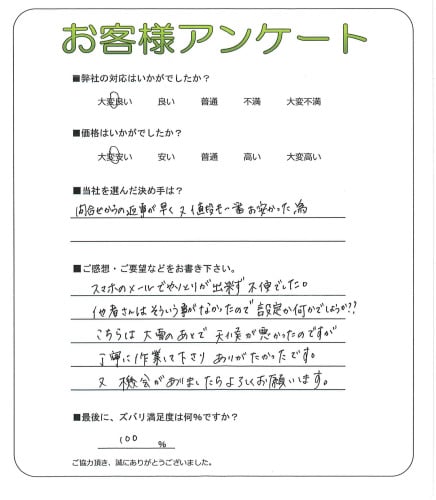 お客様アンケート
■弊社の対応はいかがでしたか？
大変良い 良い 普通 不満 大変不満
■価格はいかがでしたか？
大変安い 安い 普通 高い 大変高い
■当社を選んだ決め手は？
問合せからの返事が早く又値段も一番お安かった為
■ご感想・ご要望などをお書き下さい。
スマホのメールでやりとりが出来ず不便でした。
他者さんはそういう事がなかったので設定か何かでしょうか??
こちらは大雪のあとで天候が悪かったのですが
丁寧に作業して下さりありがたかったです。
又機会がありましたらよろしくお願いします。
■最後に、ズバリ満足度は何％ですか？
100 ％
ご協力頂き、誠にありがとうございました。